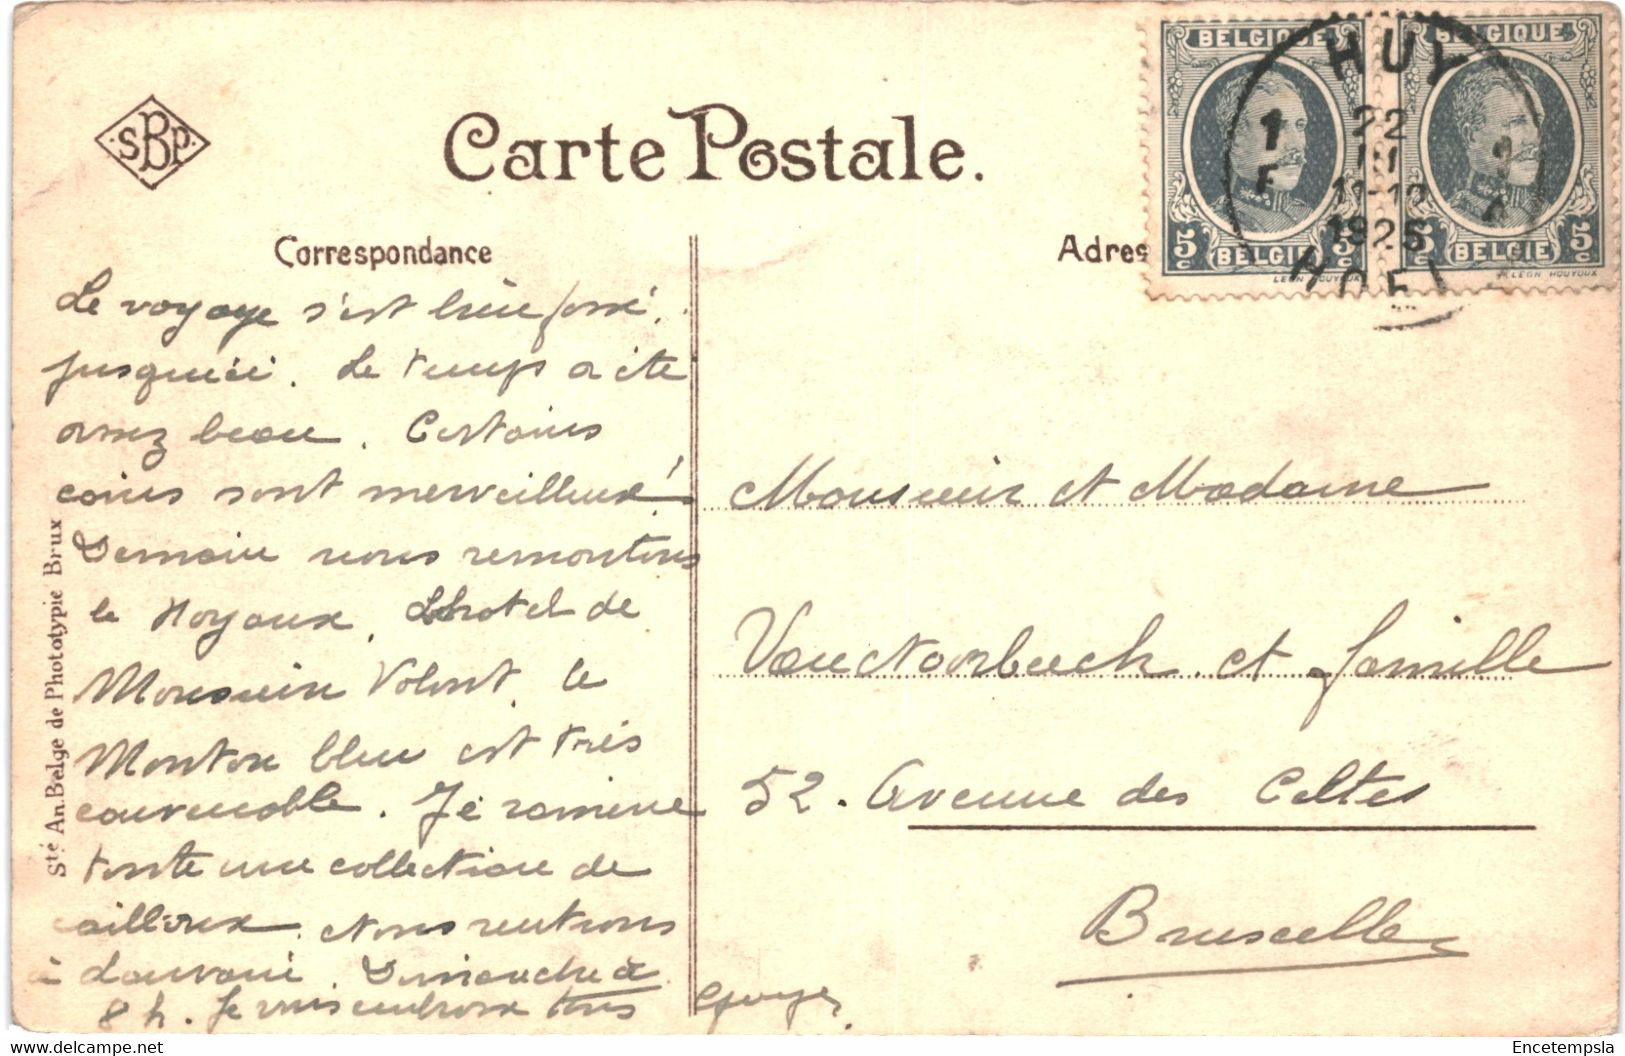 SBP
Carte Postale.
BELGIQUE
BELGIQUE
HUY
1 22
F III
11-12
1925
HOEI
5c BELGIE 5c
5c BELGIE 5c
LEON HOUYOUX
LEON HOUYOUX
Correspondance
Adres
Le voyage s'est bien passé
jusqu'ici. Le temps a été
assez beau. Certains
coins sont merveilleux!
Demain nous remontons
le Hoyoux. L'hotel de
Monsieur Volont, le
Mouton bleu est très
convenable. Je ramène
toute une collection de
cailloux. Nous rentrons
à Louvain Dimanche à
8 h. Je vous embrasse tous
Monsieur et Madame
et famille
52. Avenue des Celtes
Bruxelles
Sté An. Belge de Phototypie Brux
Encetempsla
www.delcampe.net